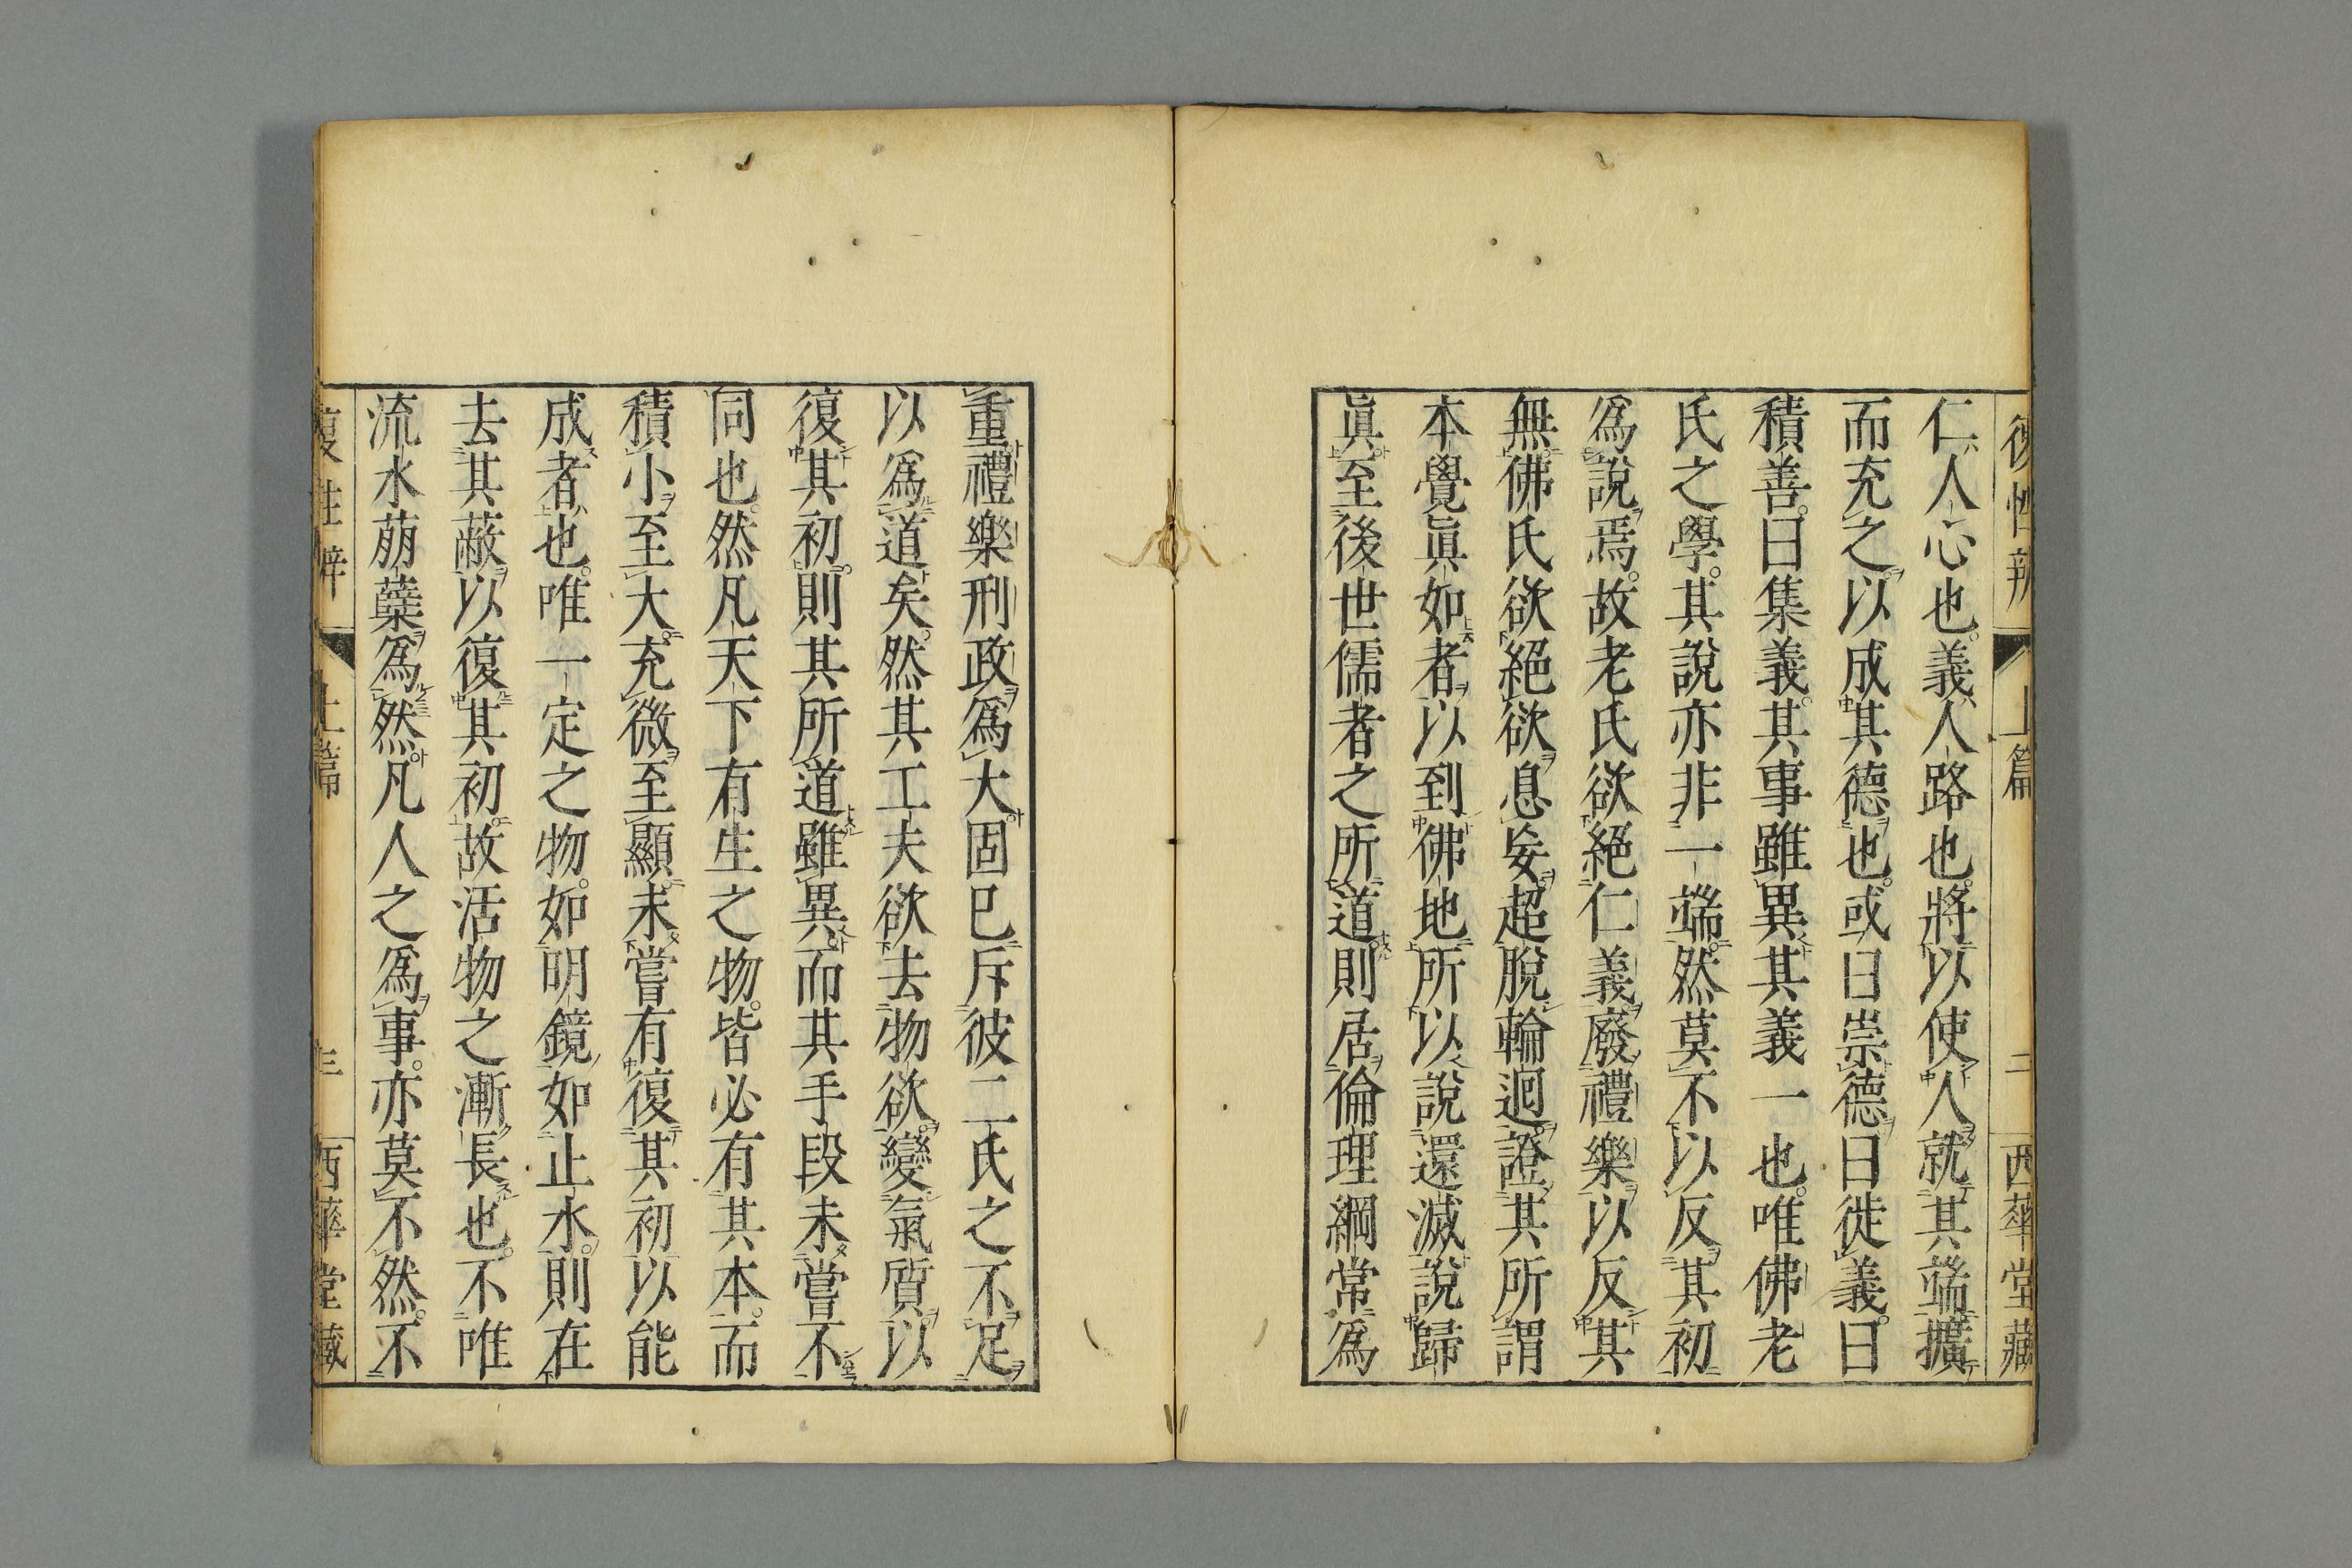 復性辨 上篇 二 西華堂藏
仁人心也。義人路也。將以使人就其端擴
而充之。以成其德也。或曰崇德曰徙義。曰
積善。曰集義。其事雖異其義一也。唯佛老
氏之學。其說亦非一端。然莫不以反其初
爲說焉。故老氏欲絕仁義廢禮樂以反其
無。佛氏欲絕欲息妄。超脫輪迴。證其所謂
本覺眞如者。以到佛地。所以說還滅說歸
眞。至後世儒者之所道則居倫理綱常爲
重。禮樂刑政爲大。固已斥彼二氏之不足
以爲道矣。然其工夫欲去物欲。變氣質。以
復其初。則其所道雖異。而其手段未嘗不
同也。然凡天下有生之物。皆必有其本。而
積小至大。充微至顯。未嘗有復其初以能
成者也。唯一定之物。如明鏡如止水。則在
去其蔽以復其初。故活物之漸長也。不唯
流水萠蘗爲然。凡人之爲事。亦莫不然。不
復性辨 上篇 三 西華堂藏